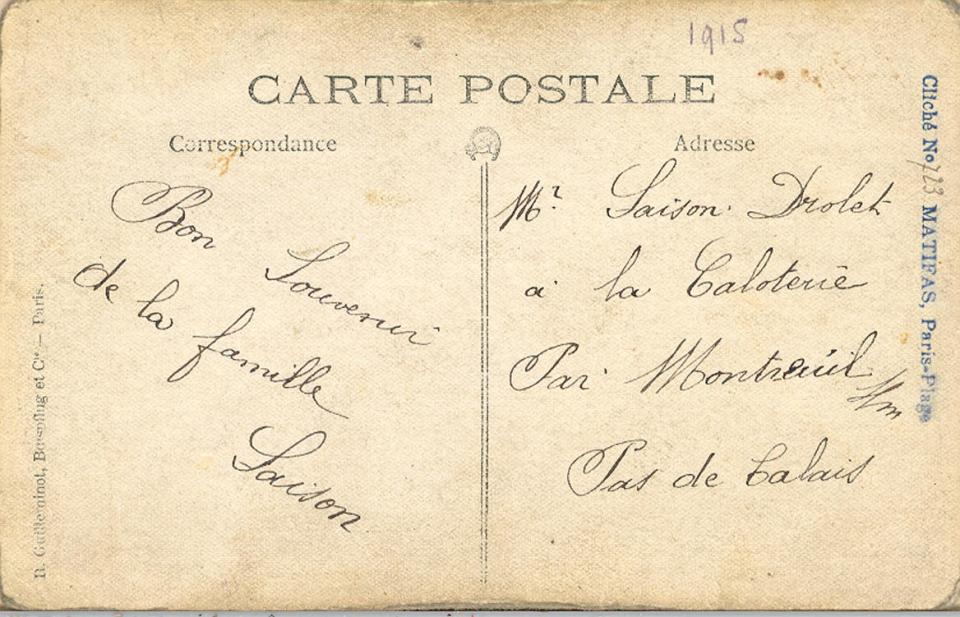 1915
CARTE POSTALE
Correspondance
Adresse
Bon Souvenir
de la famille
Saison
Mr Saison. Drolet
a la Caloterie
Par Montreuil s/m
Pas de Calais
Cliché No 723 MATIFAS, Paris-Plage
R. Guilleminot, Bœspflug et Cie. — Paris.